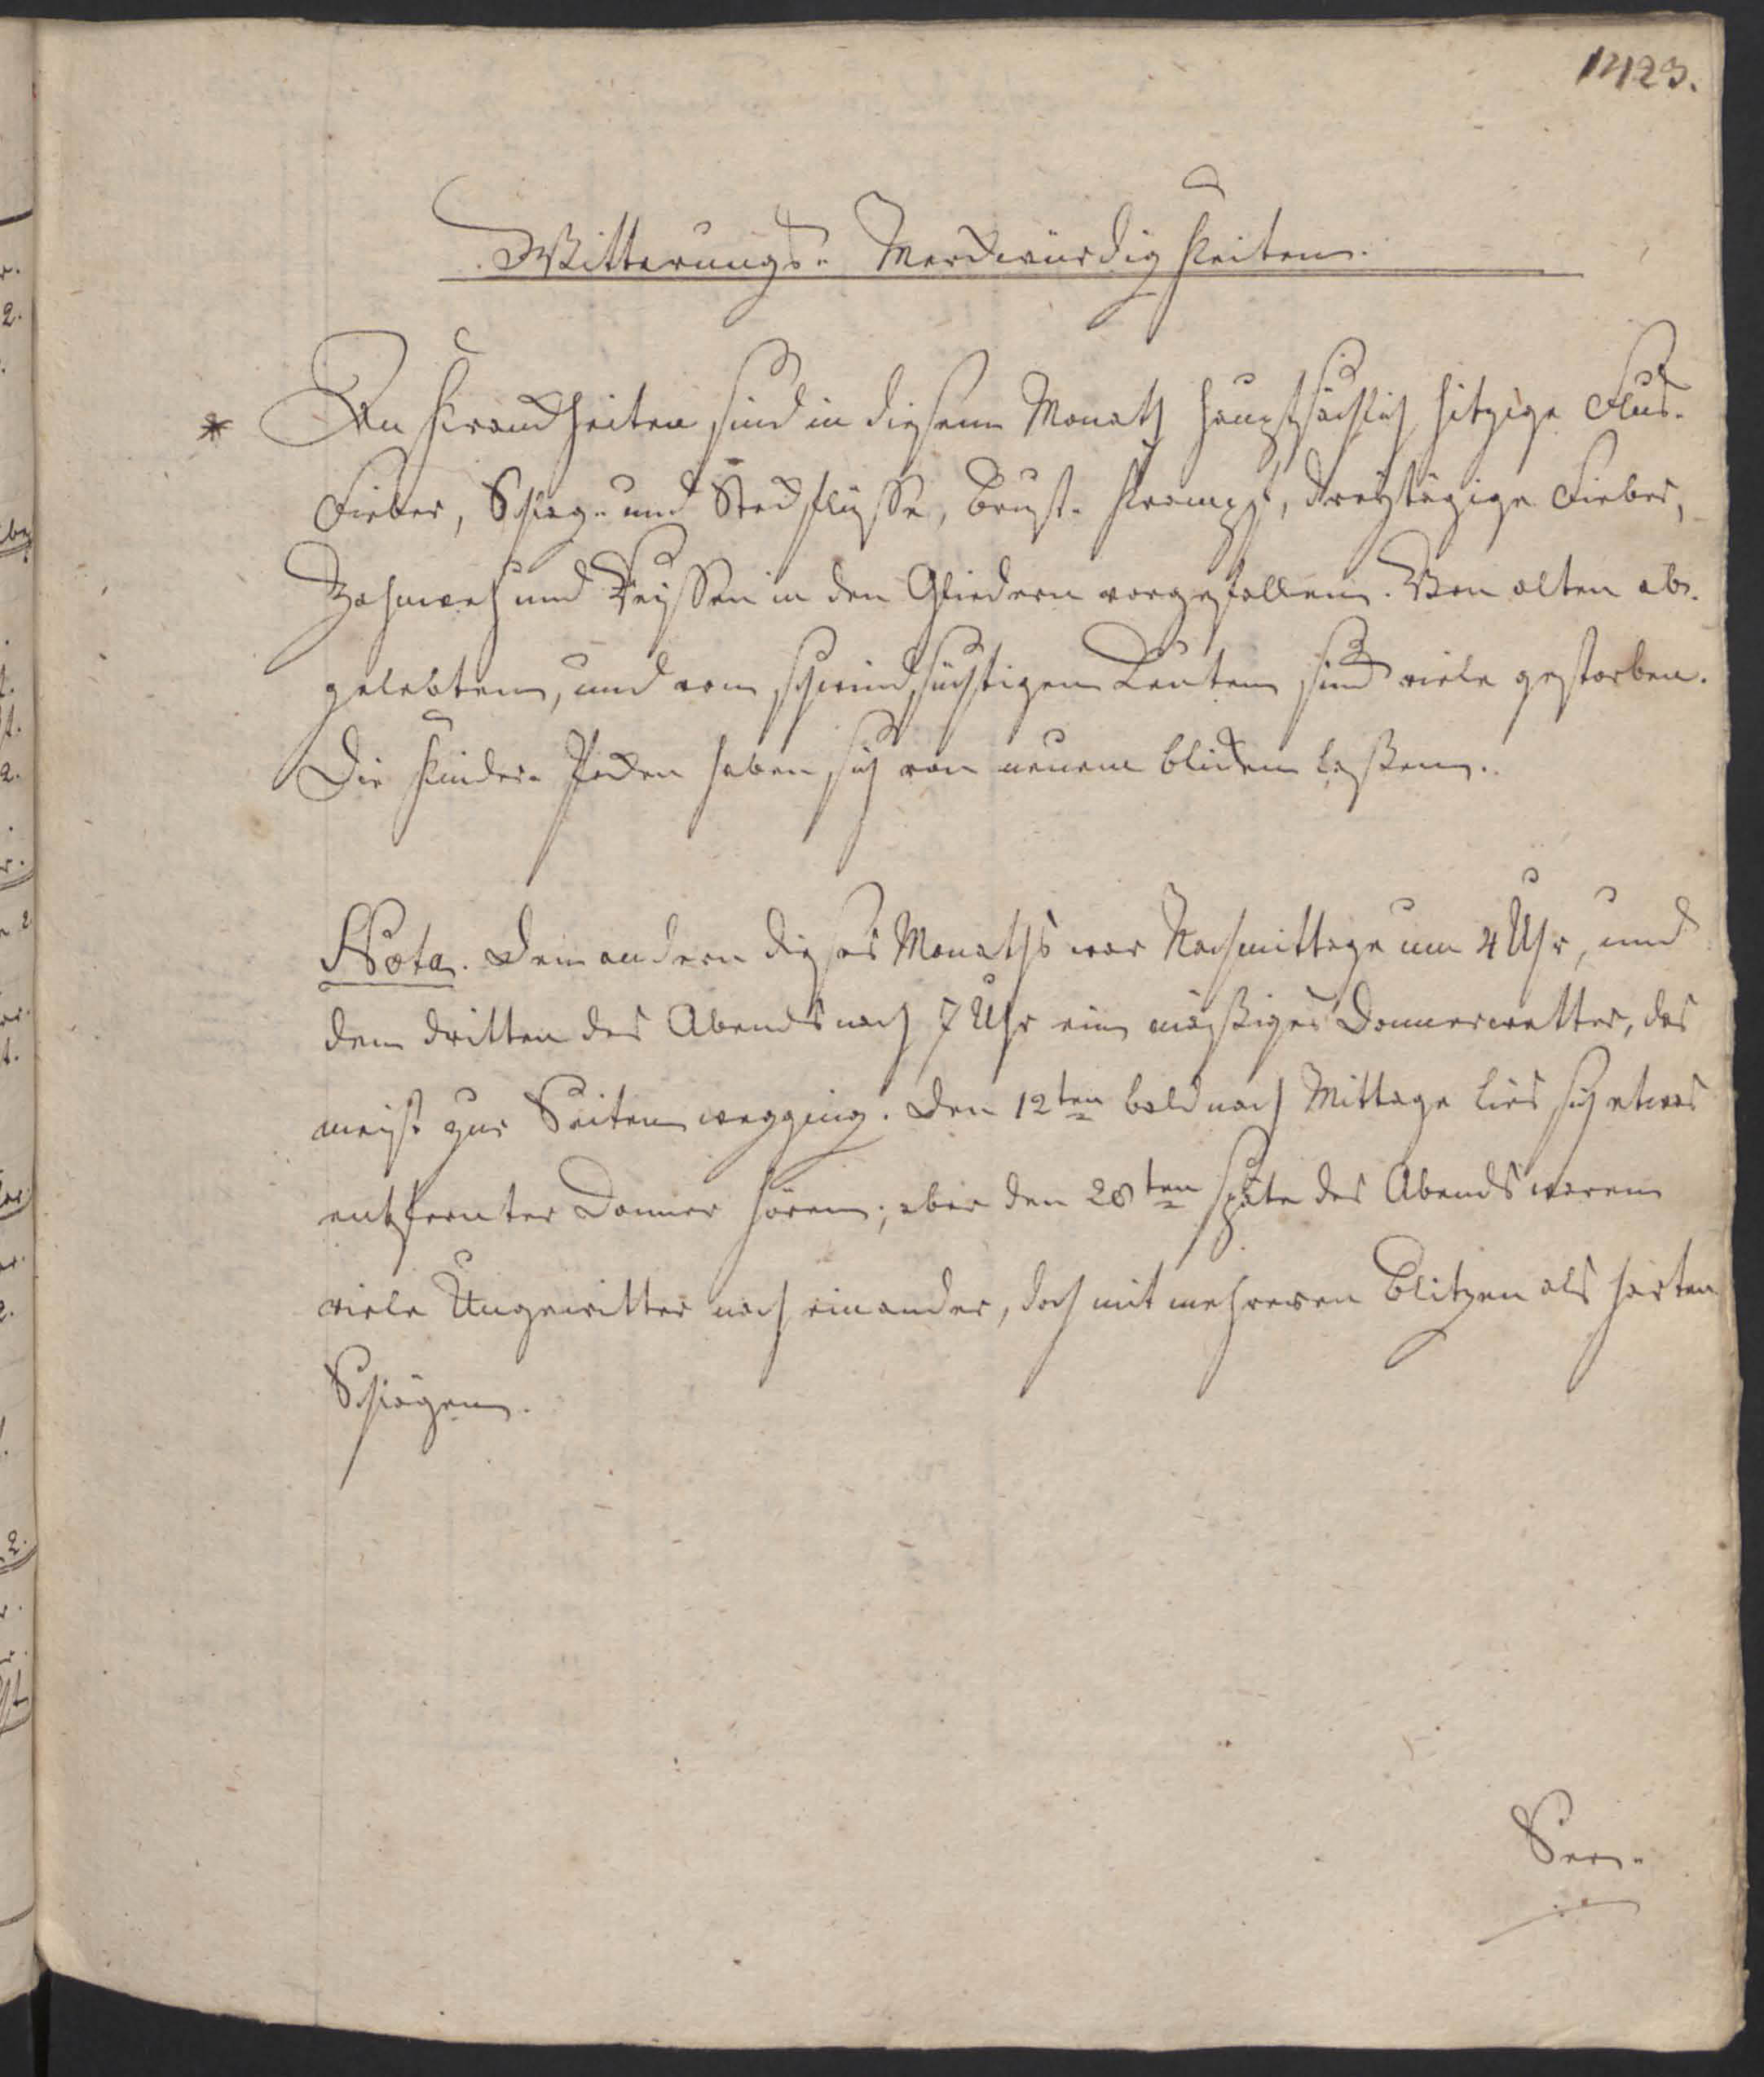 1423.
Witterungs- Merckwürdigkeiten.
* An Kranckheiten sind in diesem Monath hauptsächlich hitzige Flus-
Fieber, Schlag- und Steckflüsse, Brust- Krampf, dreytägige Fieber,
Zahnweh und Reissen in den Gliedern vorgefallen. Von alten ab-
gelebten, und von schwindsüchtigen Leuten sind viele gestorben.
Die Kinder- Pocken haben sich von neuem blicken laßen.
Nota. Den andern dieses Monaths war Nachmittage um 4 Uhr, und
den dritten des Abends nach 7 Uhr ein mäßiges Donnerwetter, das
meist zur Seiten wegging. Den 12ten bald nach Mittage lies sich etwas
entfernter Donner hören; aber den 28ten späte des Abends waren
viele Ungewitter nach einander, doch mit mehreren Blitzen als harten
Schlägen.